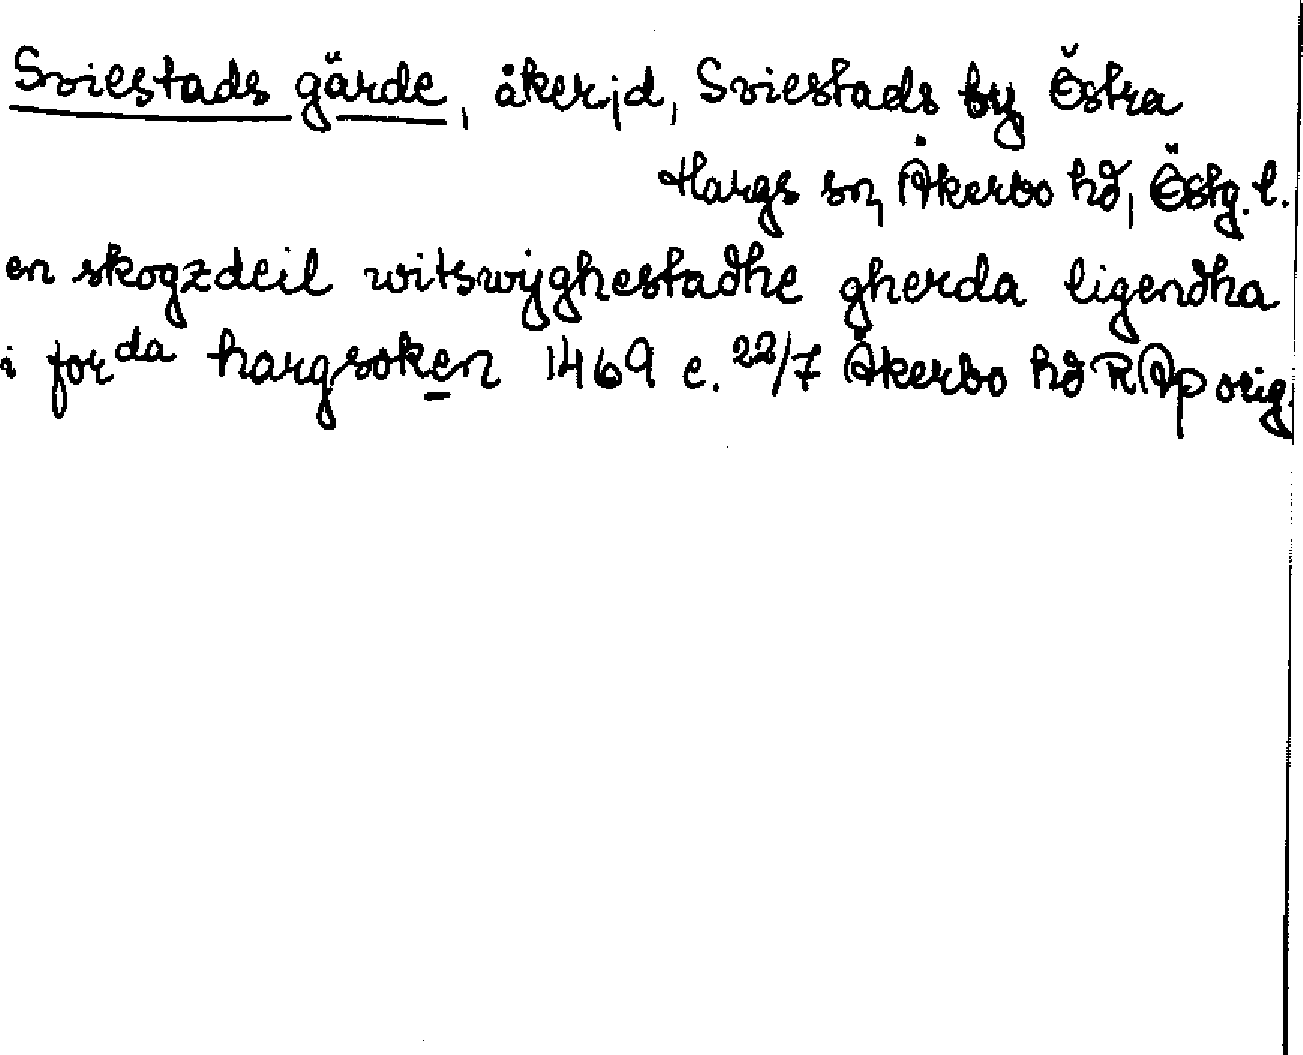 Sviestads gärde, åkerjd, Sviestads by Östra
Hargs sn, Åkerbo hd, Östg. l.
en skogzdeil witswijghestadhe gherda ligendha
i forda hargsoken 1469 c. 22/7 Åkerbo hd RAp orig.